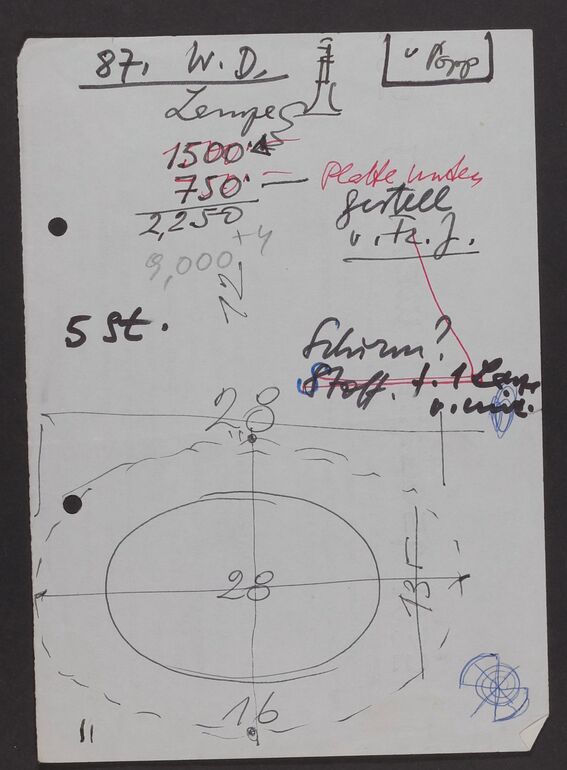 87. W. D.
Lampe
1500
750 — Platte unten
2,250 Gestell
+4 v. Fr. J.
9,000
12
5 St.
Schirm?
Stoff. f. 1 Lampe
28
28
135
16
11